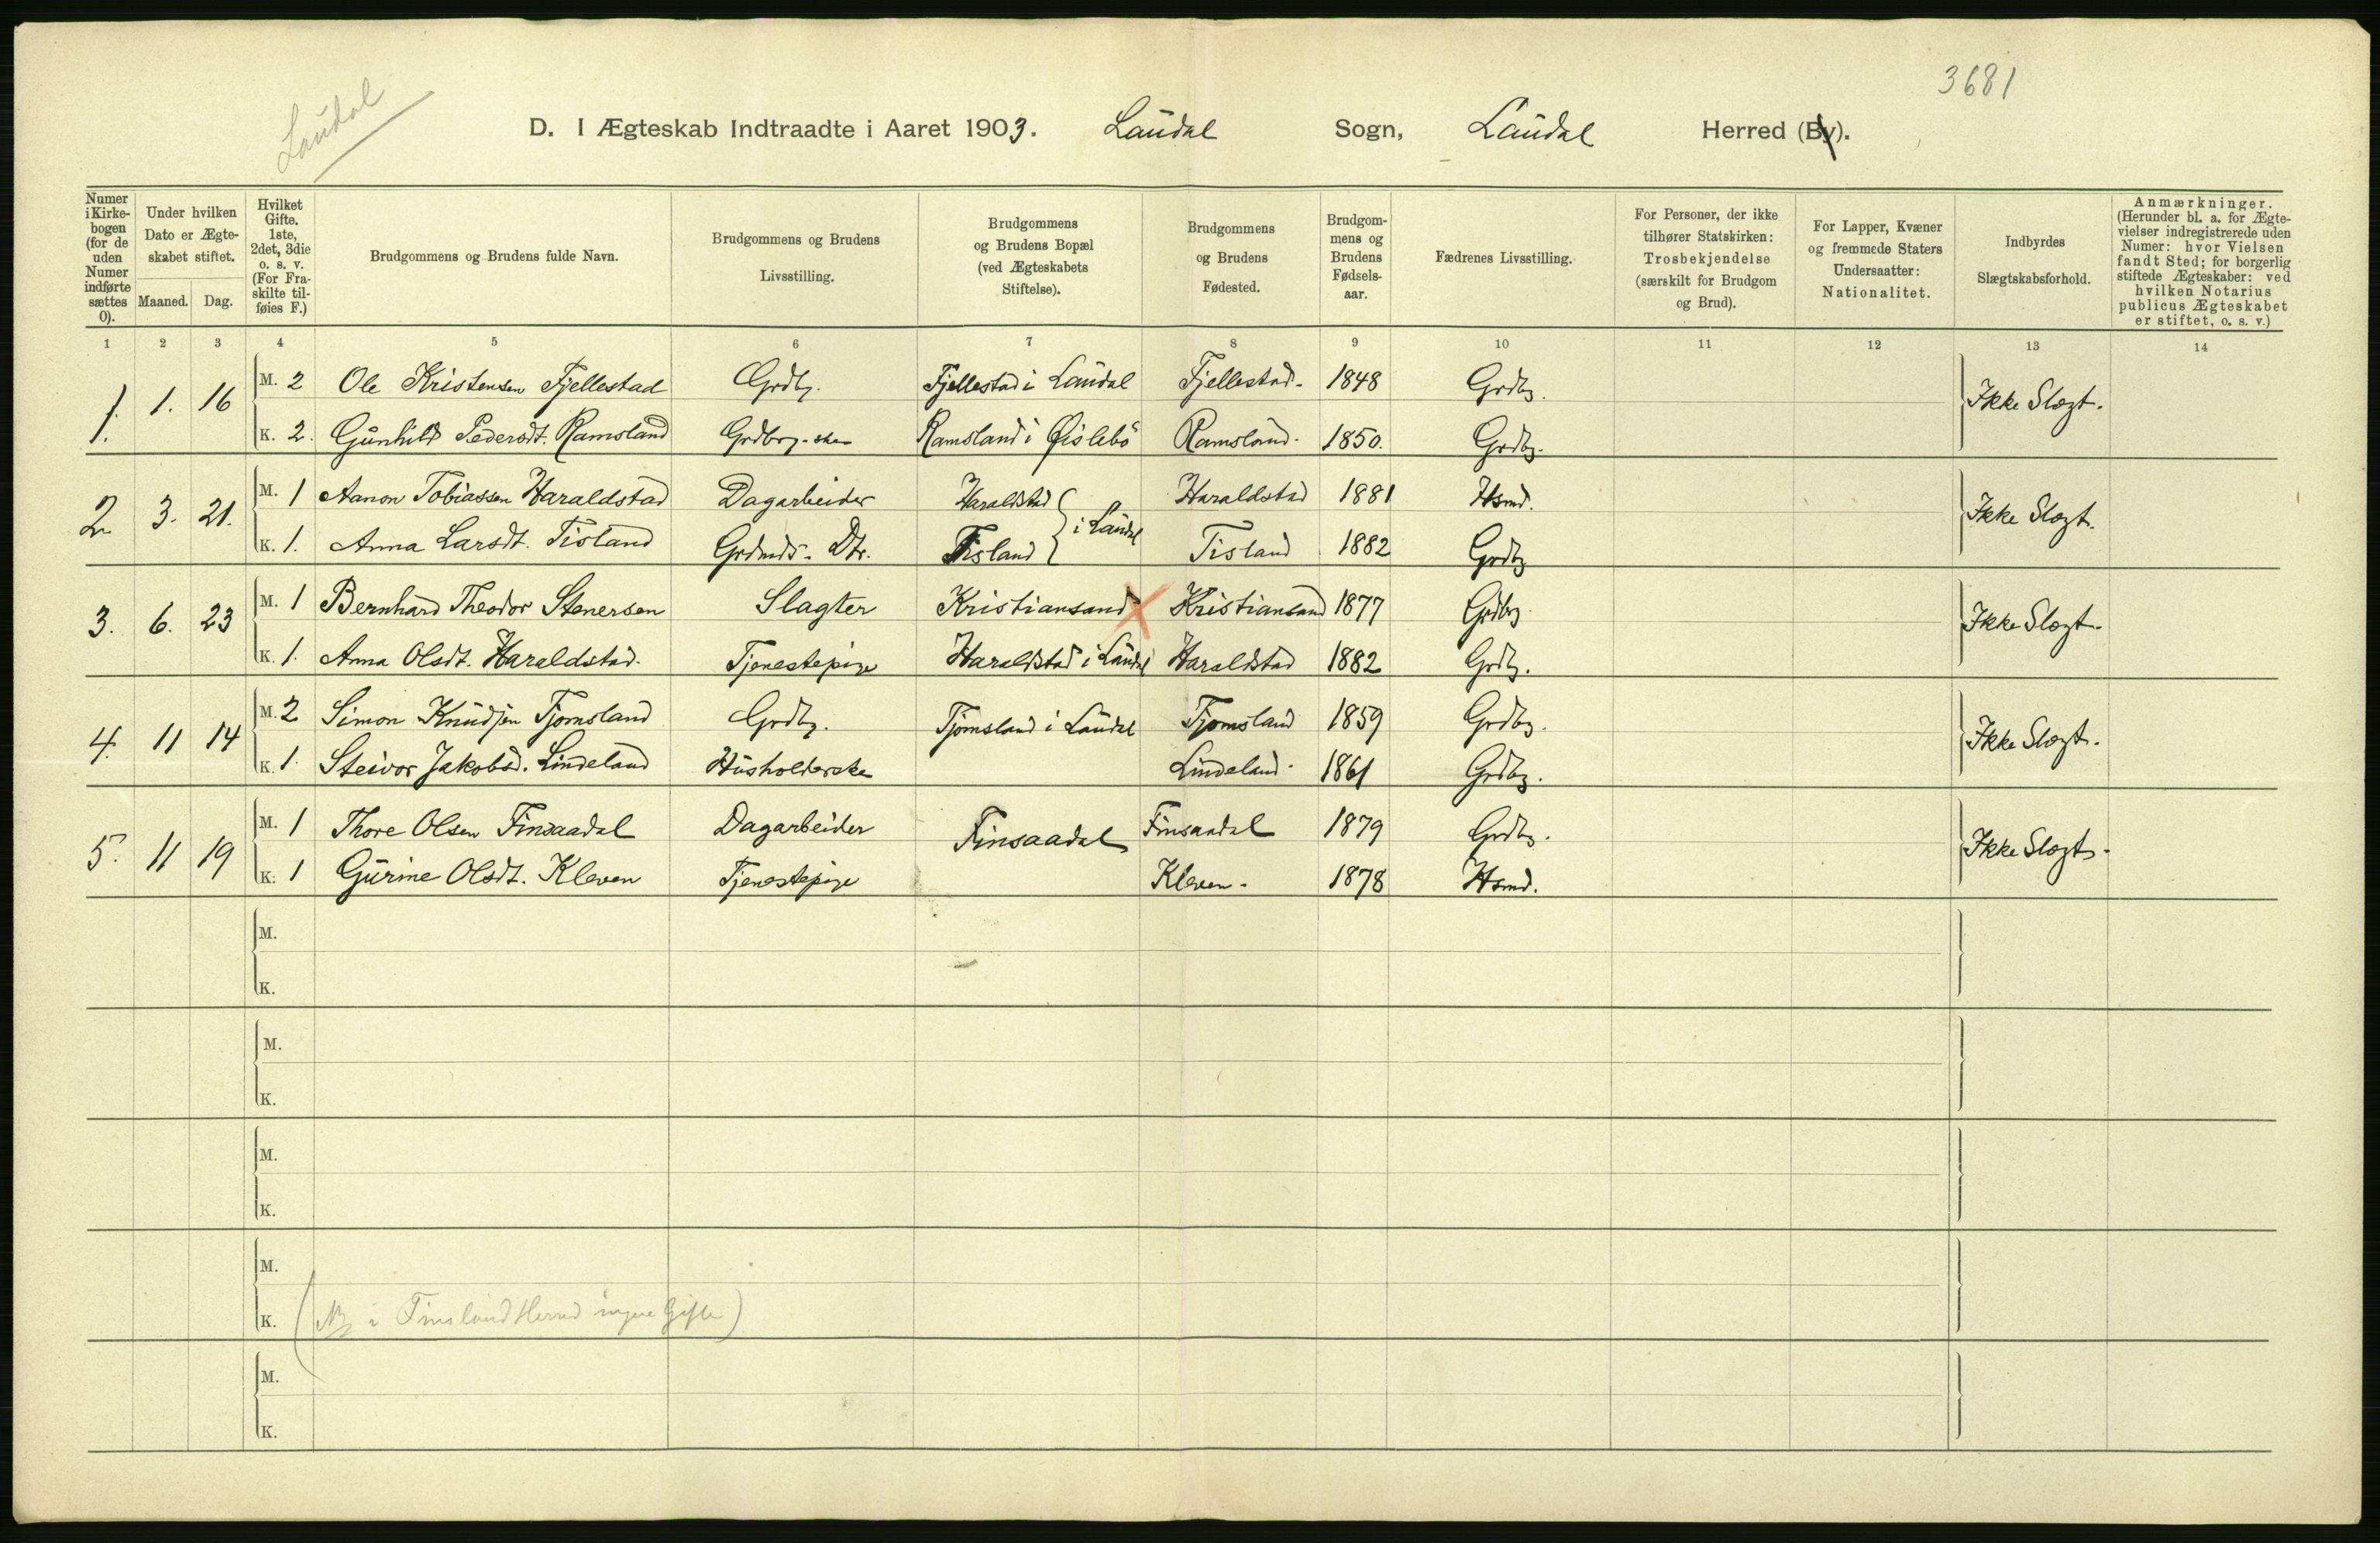 3681
Laudal
D. I Ægteskab Indtraadte i Aaret 1903. Laudal Sogn, Laudal Herred (By).
Numer i Kirkebogen (for de uden Numer indførte sættes 0).
Under hvilken Dato er Ægteskabet stiftet.
Maaned. Dag.
Hvilket Gifte. 1ste, 2det, 3die o. s. v. (For Fraskilte tilføies F.)
Brudgommens og Brudens fulde Navn.
Brudgommens og Brudens Livsstilling.
Brudgommens og Brudens Bopæl (ved Ægteskabets Stiftelse).
Brudgommens og Brudens Fødested.
Brudgommens og Brudens Fødselsaar.
Fædrenes Livsstilling.
For Personer, der ikke tilhører Statskirken: Trosbekjendelse (særskilt for Brudgom og Brud).
For Lapper, Kvæner og fremmede Staters Undersaatter: Nationalitet.
Indbyrdes Slægtskabsforhold.
Anmærkninger. (Herunder bl. a. for Ægtevielser indregistrerede uden Numer: hvor Vielsen fandt Sted; for borgerlig stiftede Ægteskaber: ved hvilken Notarius publicus Ægteskabet er stiftet, o. s. v.)
1 2 3 4 5 6 7 8 9 10 11 12 13 14
1. 1. 16 M. 2 Ole Kristensen Fjellestad Grdbr. Fjellestad i Laudal Fjellestad. 1848 Grdbr. Ikke Slægt.
K. 2. Gunhild Pedersdt. Ramsland Grdbrg.ske Ramsland i Øislebö Ramsland. 1850. Grdbr.
2 3. 21. M. 1 Aanon Tobiassen Haraldstad Dagarbeider Haraldstad i Laudal Haraldstad 1881 Hsmd. Ikke Slægt.
K. 1. Anna Larsdt. Tisland Grdmds. Dtr. Tisland Tisland 1882 Grdbr
3. 6. 23 M. 1 Bernhard Theodor Stenersen Slagter Kristiansand Kristiansand 1877 Grdbr. Ikke Slægt.
K. 1. Anna Olsdt. Haraldstad. Tjenestepige Haraldstad i Laudal Haraldstad 1882 Grdbr.
4. 11 14 M. 2 Simon Knudsen Tjomsland Grdbr. Tjomsland i Laudal Tjomsland 1859 Grdbr. Ikke Slægt.
K. 1. Steivor Jakobsd. Lindeland Husholderske Lindeland. 1861 Grdbr.
5. 11 19 M. 1 Thore Olsen Finsaadal Dagarbeider Finsaadal Finsaadal 1879 Grdbr. Ikke Slægt.
K. 1 Gurine Olsdt. Kleven Tjenestepige Kleven. 1878 Hsmd.
M.
K.
M.
K.
M.
K.
M.
K. (NB i Finsland Herred ingen Gifte)
M.
K.